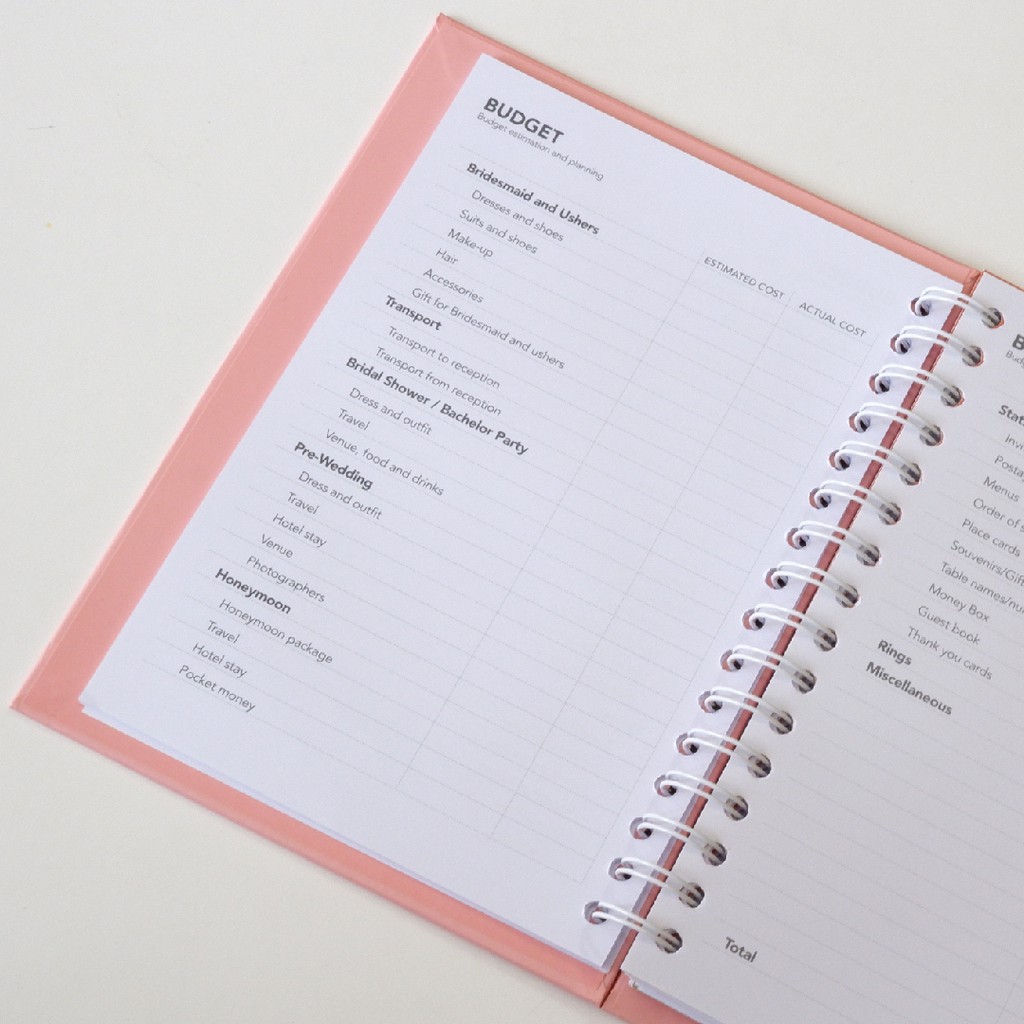 BUDGET
Budget estimation and planning
ESTIMATED COST
ACTUAL COST
Bridesmaid and Ushers
Dresses and shoes
Suits and shoes
Make-up
Hair
Accessories
Gift for Bridesmaid and ushers
Transport
Transport to reception
Transport from reception
Bridal Shower / Bachelor Party
Dress and outfit
Travel
Venue, food and drinks
Pre-Wedding
Dress and outfit
Travel
Hotel stay
Venue
Photographers
Honeymoon
Honeymoon package
Travel
Hotel stay
Pocket money
Menus
Order of
Place cards
Souvenirs/
Table names/
Money Box
Guest book
Thank you cards
Rings
Miscellaneous
Total